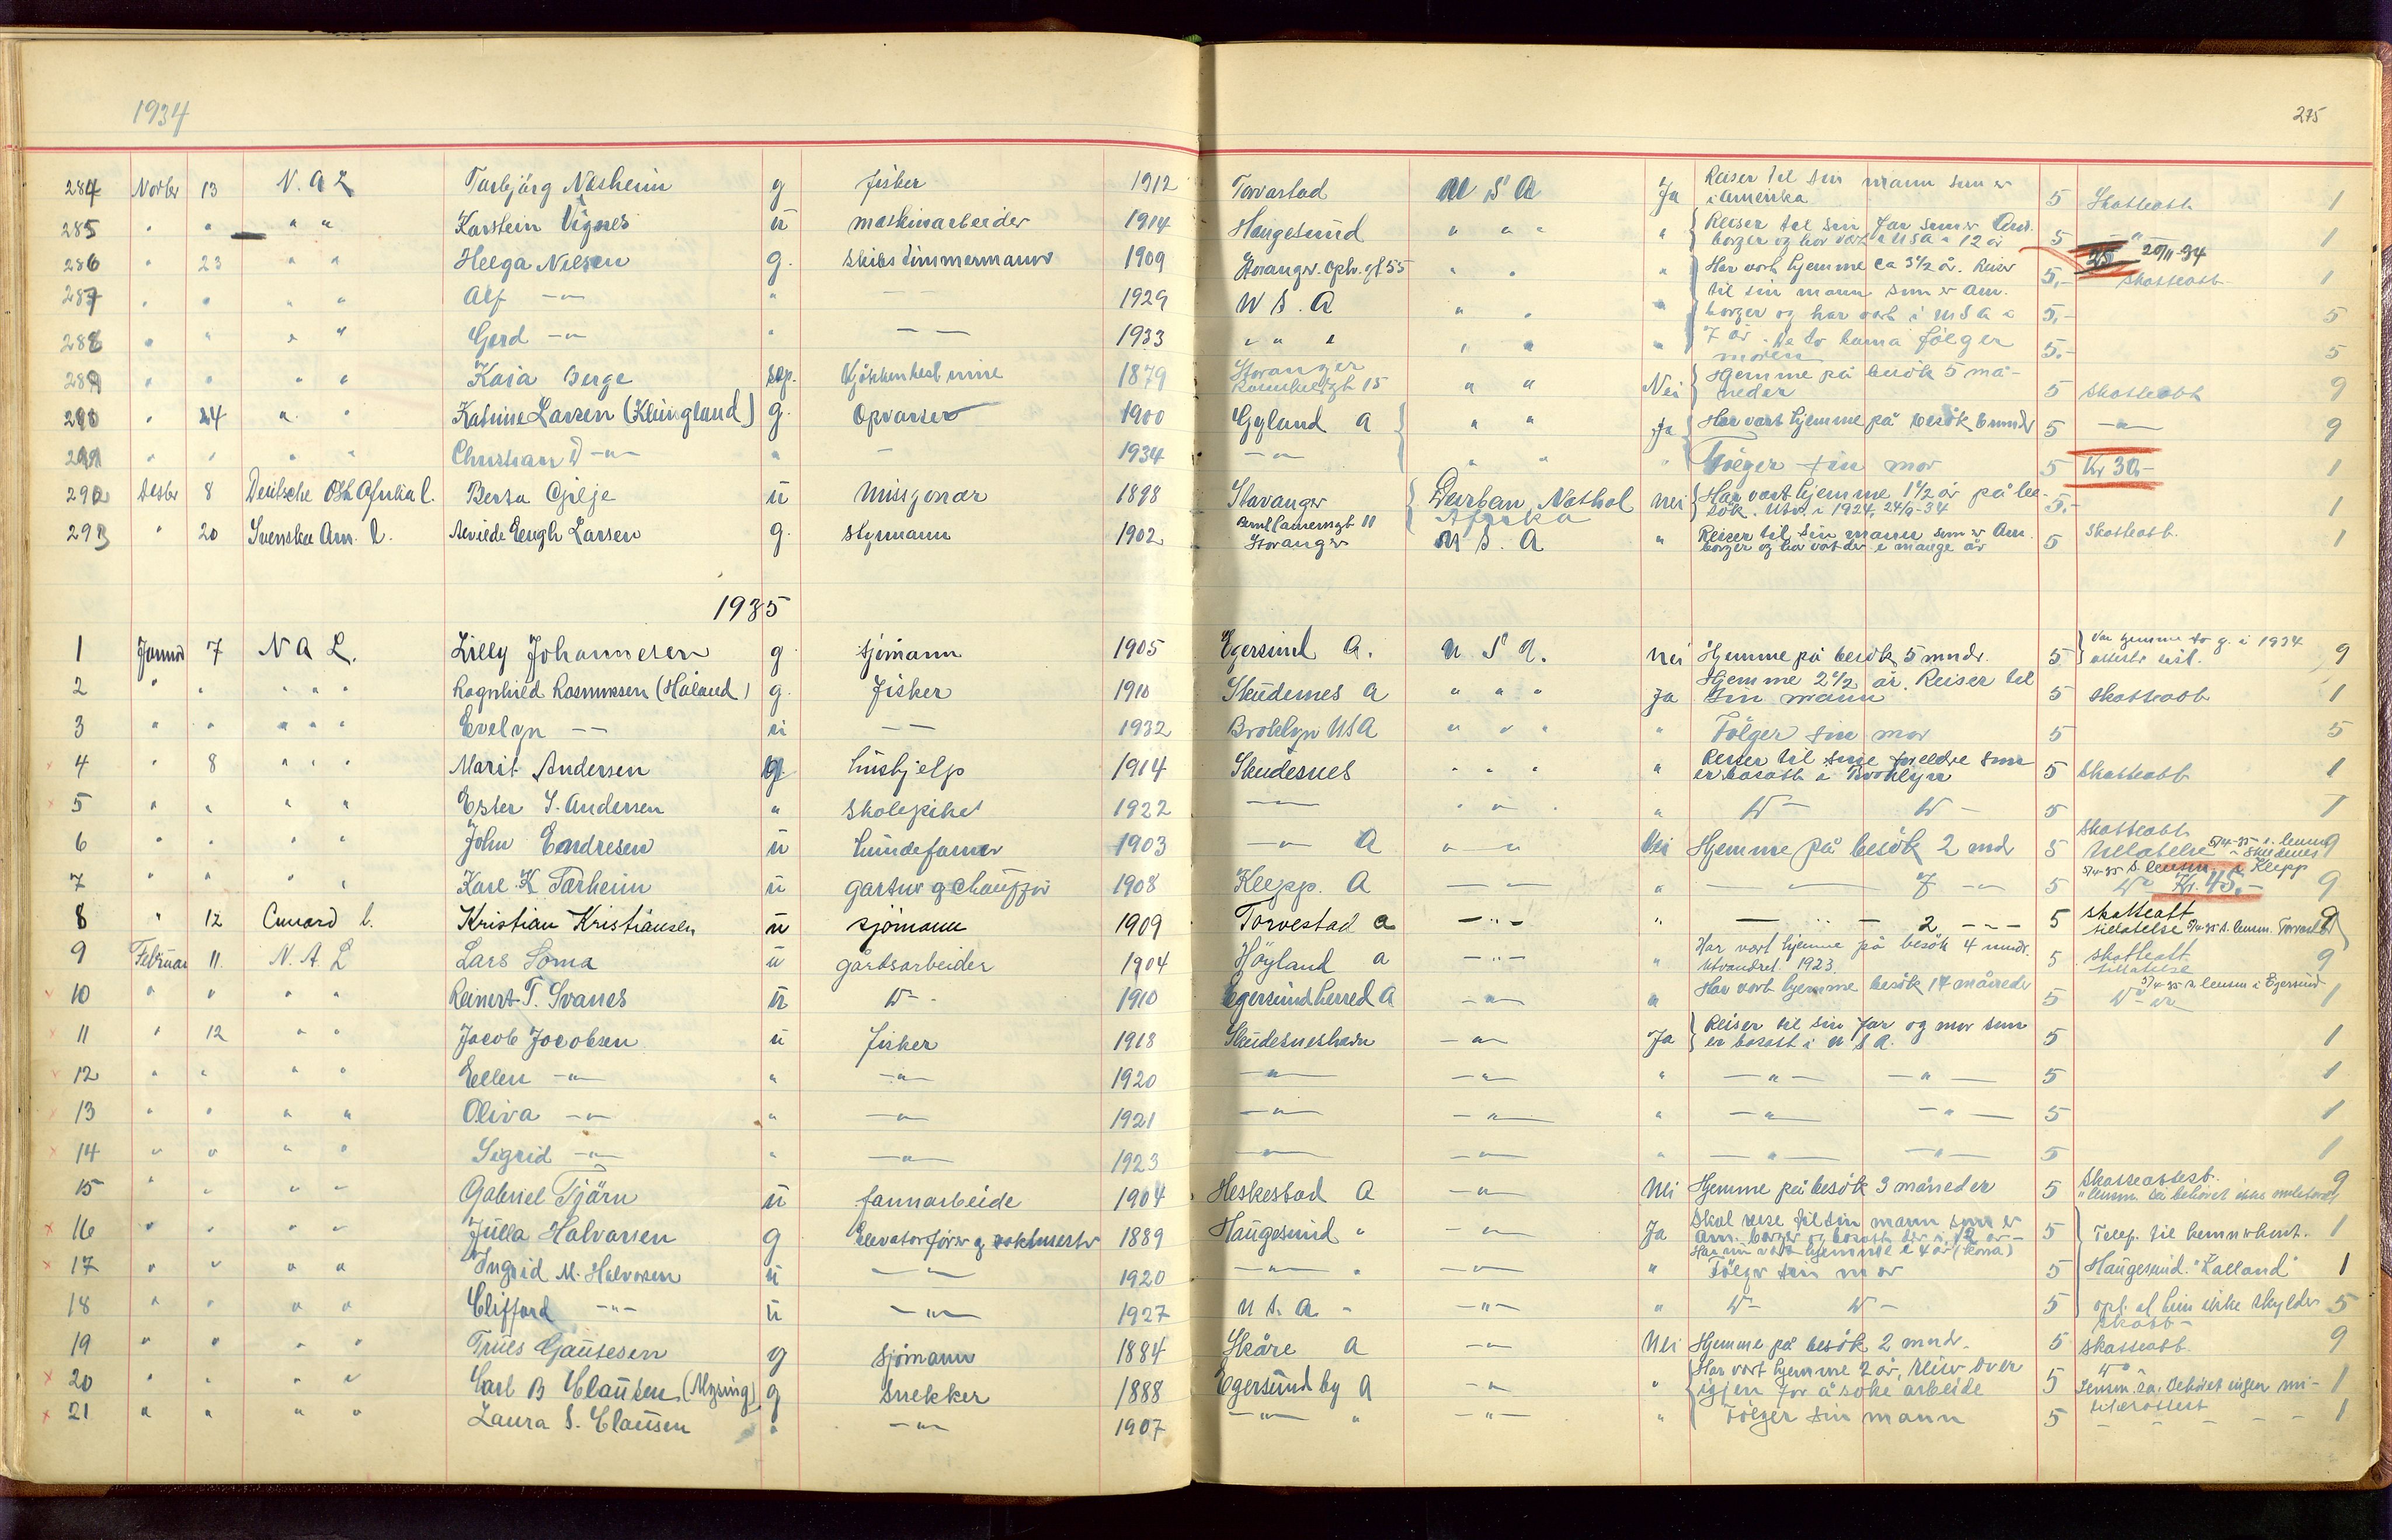 1934
275
284 Novbr 13 N. A L Torbjørg Nesheim g fisker 1912 Torvastad U S A Ja Reiser til sin mann som er i Amerika 5 Skatteatt. 1
285 " " " " Karstein Vignes ü maskinarbeider 1914 Haugesund " " " " Reiser til sin far som er Am. borger og har vært i USA i 12 år 5 — " — 1
25 20/11-34
286 " 23 " " Helga Nilsen g. Skibstimmermann 1909 Stavanger. " " " Har vært hjemme ca 3½ år. Reiser 5,- Skatteatt. 1
287 " " " " Alf — " — " — 1929 U S. A " " " til sin mann som er am. borger og har vært i U S A i 5,- 5
288 " " " " Gerd — " — " — — 1933 " " " " " " 7 år. De to barna følger moren 5.- 5
289 " " " " Kaia Berge sep. Kjøkkenbestyrerinne 1879 Stavanger 15 " " Nei Hjemme på besøk 5 måneder 5 Skatteatt 9
290 " 24 " " Katrine Larsen (Klungland) g. Opvarser 1900 Gyland A " " Ja Har vært hjemme på besøk 6 mndr 5 — " — 9
291 " " " " Christian D — " — " — 1934 — " — " " " Følger sin mor 5 Kr 30,- 1
292 Desbr 8 Deutsche Ost Afrika l. Berta Gilje ü Missjonær 1898 Stavanger Durban Nathal Afrika nei Har vært hjemme 1½ år på besøk. Utv. i 1924. 24/9-34 5.- 1
293 " 20 Svenska Am. L. Larsen g. styrmann 1902 11 Stavanger U S. A " Reiser til sin mann som er Am. borger og har vært der i mange år 5 Skatteatt. 1
1935
1 Januar 7 N A L. Lilly Johannesen g sjømann 1905 Egersund A. U S A. Nei Hjemme på besøk 5 mndr. 5 Var hjemme to g. i 1934 9
2 " " " " " Ragnhild Rasmussen (Håland) g. Fisker 1910 Skudenes A " " " Ja Hjemme 2½ år. Reiser til sin mann 5 Skatteatt 1
3 " " " " " Evelyn — — ü — — 1932 Broklyn USA " " " " Følger sin mor 5 5
4 " 8 " " " Marit Andersen g. Hushjelp 1914 Skudesnes " " " " Reiser til sine foreldre som er bosatt i Brooklyn 5 Skatteatt 1
5 " " " " Ester S. Andersen " Skolepike 1922 — " — " " " " D — D — 5 1
6 " " " " John Endresen ü 1903 — " — A " " Nei Hjemme på besøk 2 mdr 5 Skatteatt. tillatelse 5/4-35 l. lensm. i Skudenes 9
7 " " " " Karl K Tarheim ü gartner og Chauffør 1908 Klepp. A — — " — " — 7 — " — 5 5/4-35 l. lensm. i Klepp Do Kr. 45.- 9
8 " 12 Cunard l. Kristian Kristiansen ü sjømann 1909 Torvestad a — " — " — " — 2 — — — 5 skatteatt tillatelse l. lensm. Torvastad 9
9 Februar 11. N. A. L Lars Soma ü gårdsarbeider 1904 Høyland a — " — " Har vært hjemme på besøk 4 mndr. utvandret 1923. 5 skatteatt tillatelse 9
10 " " " " Reinert T. Svanes ü Do 1910 Egersund herred A — " — " Har vært hjemme besøk 17 måneder 5 5/4-35 l. lensm i Egersund Do — " — 1
11 " 12 " " Jacob Jacobsen ü fisker 1918 Skudesneshavn — " — Ja Reiser til sin far og mor som er bosatt i U S A. 5 1
12 " " " " Ellen — " — " — " — 1920 — " — — " — " — " — — " — 5 1
13 " " " " Oliva — " — " — " — 1921 — " — — " — " — " — — " — 5 1
14 " " " " Sigrid — " — " — " — 1923 — " — — " — " — " — — " — 5 1
15 " " " " Gabriel Tjørn ü farmarbeide 1904 Heskestad A — " — Nei Hjemme på besøk 3 måneder 5 Skatteattest. 9
16 " " " " Julla Halvorsen g Elevatorfører og vaktmester 1889 Haugesund " — " — Ja Skal reise til sin mann som er am. borger og bosatt der i 12 år — Har nu vært hjemme i 4 år (kona) 5 Telef. til hennes 1
17 " " " " Ingrid M. Halvorsen ü — — 1920 — " — " — " — " Følger sin mor 5 Haugesund. "Lalland" 1
18 " " " " Clifford — " — ü — " — 1927 U S. A. " — " — " D — D — 5 opl. at hun ikke skylder skatt — 5
19 " " " " Trues Gautesen g sjømann 1884 Skåre A — " — Nei Hjemme på besøk 2 mndr. 5 skatteatt. 9
20 " " " " Carl B Clausen (Mysing) g snekker 1888 Egersund by A — " — " Har vært hjemme 2 år, reiser over igjen for å søke arbeide 5 Do — Lensm. sa, behøvet ingen militærattest 1
21 " " " " Laura S. Clausen " — " — 1907 — " — " — " — " Følger sin mann 5 — — — — 1